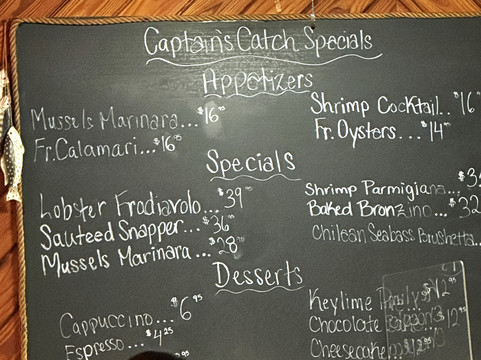 Captain's Catch Specials
Appetizers
Mussels Marinara...$16
Fr.Calamari...$16
Shrimp Cocktail..$16
Fr.Oysters...$14
Specials
Lobster Fradiavolo...$39
Sauteed Snapper...$36
Mussels Marinara...$28
Shrimp Parmigiana...
Baked Bronzino...$32
Chilean Seabass Brushetta..
Desserts
Cappuccino...$6.95
Espresso...$4.25
Keylime
Chocolate
Cheesecake